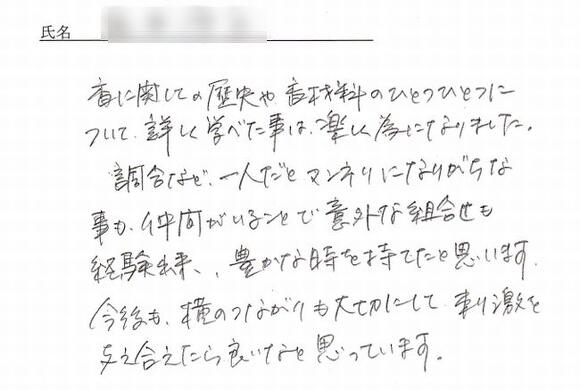 氏名
香に関しての歴史や香材料のひとつひとつに
ついて、詳しく学べた事は、楽しく為になりました。
調合など、一人だとマンネリになりがちな
事も、仲間がいることで意外な組合せも
経験出来、豊かな時を持てたと思います。
今後も、横のつながりも大切にして、刺激を
与え合えたら良いなと思っています。